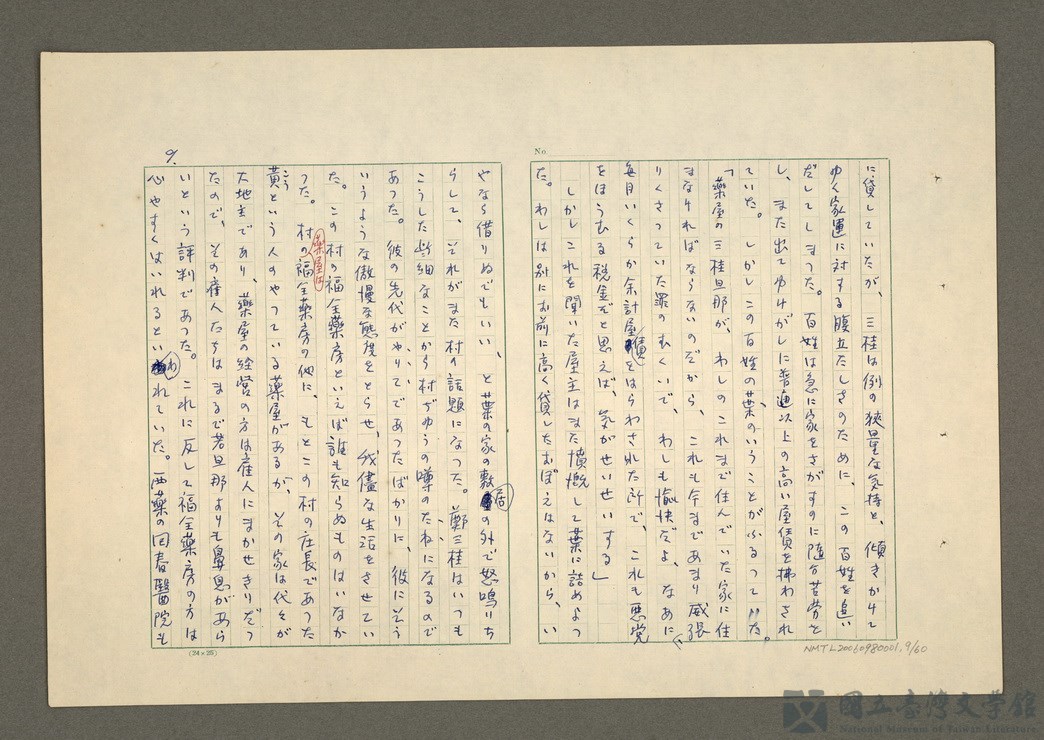 No
に貸していたが、三桂は例の狭量な気持と、傾きかけて
ゆく家運に対する腹立たしさのために、この百姓を追い
だしてしまつた。百姓は急に家をさがすのに随分苦労を
し、また出てゆけがしに普通以上の高い屋賃を拂わされ
ていた。しかしこの百姓の葉のいうことがふるつていた。
「薬屋の三桂旦那が、わしのこれまで住んでいた家に住
まなければならないのだから、これも今まであまり威張
りくさつていた罪のむくいで、わしも愉快だよ、なあに、
毎月いくらか余計屋賃をはらわされた所で、これも悪党
をほうむる税金だと思えば、気がせいせいする」
しかしこれを聞いた屋主はまた憤慨して葉に詰めよつ
た。わしは別にお前に高く貸したおぼえはないから、い
やなら借りぬでもいい、と葉の家の敷居の外で怒鳴りち
らして、それがまた村の話題になつた。鄭三桂はいつも
こうした些細なことから村ぢゆうの噂のたねになるので
あつた。彼の先代がやりてであつたばかりに、彼にそう
いうような傲慢な態度をとらせ、我儘な生活をさせてい
た。この村の福全薬房といえば誰も知らぬものはいなか
つた。村の薬屋は福全薬房の他に、もとこの村の庄長であつた
黄こうという人のやつている薬屋があるが、その家は代々が
大地主であり、薬屋の経営の方は雇人にまかせきりだつ
たので、その雇人たちはまるで若旦那よりも鼻息があら
いという評判であつた。これに反して福全薬房の方は
心やすくはいれるといわれていた。西薬の回春醫院も
9.
(24×25)
NMTL20060980001.9/60
國立臺灣文學館
National Museum of Taiwan Literature